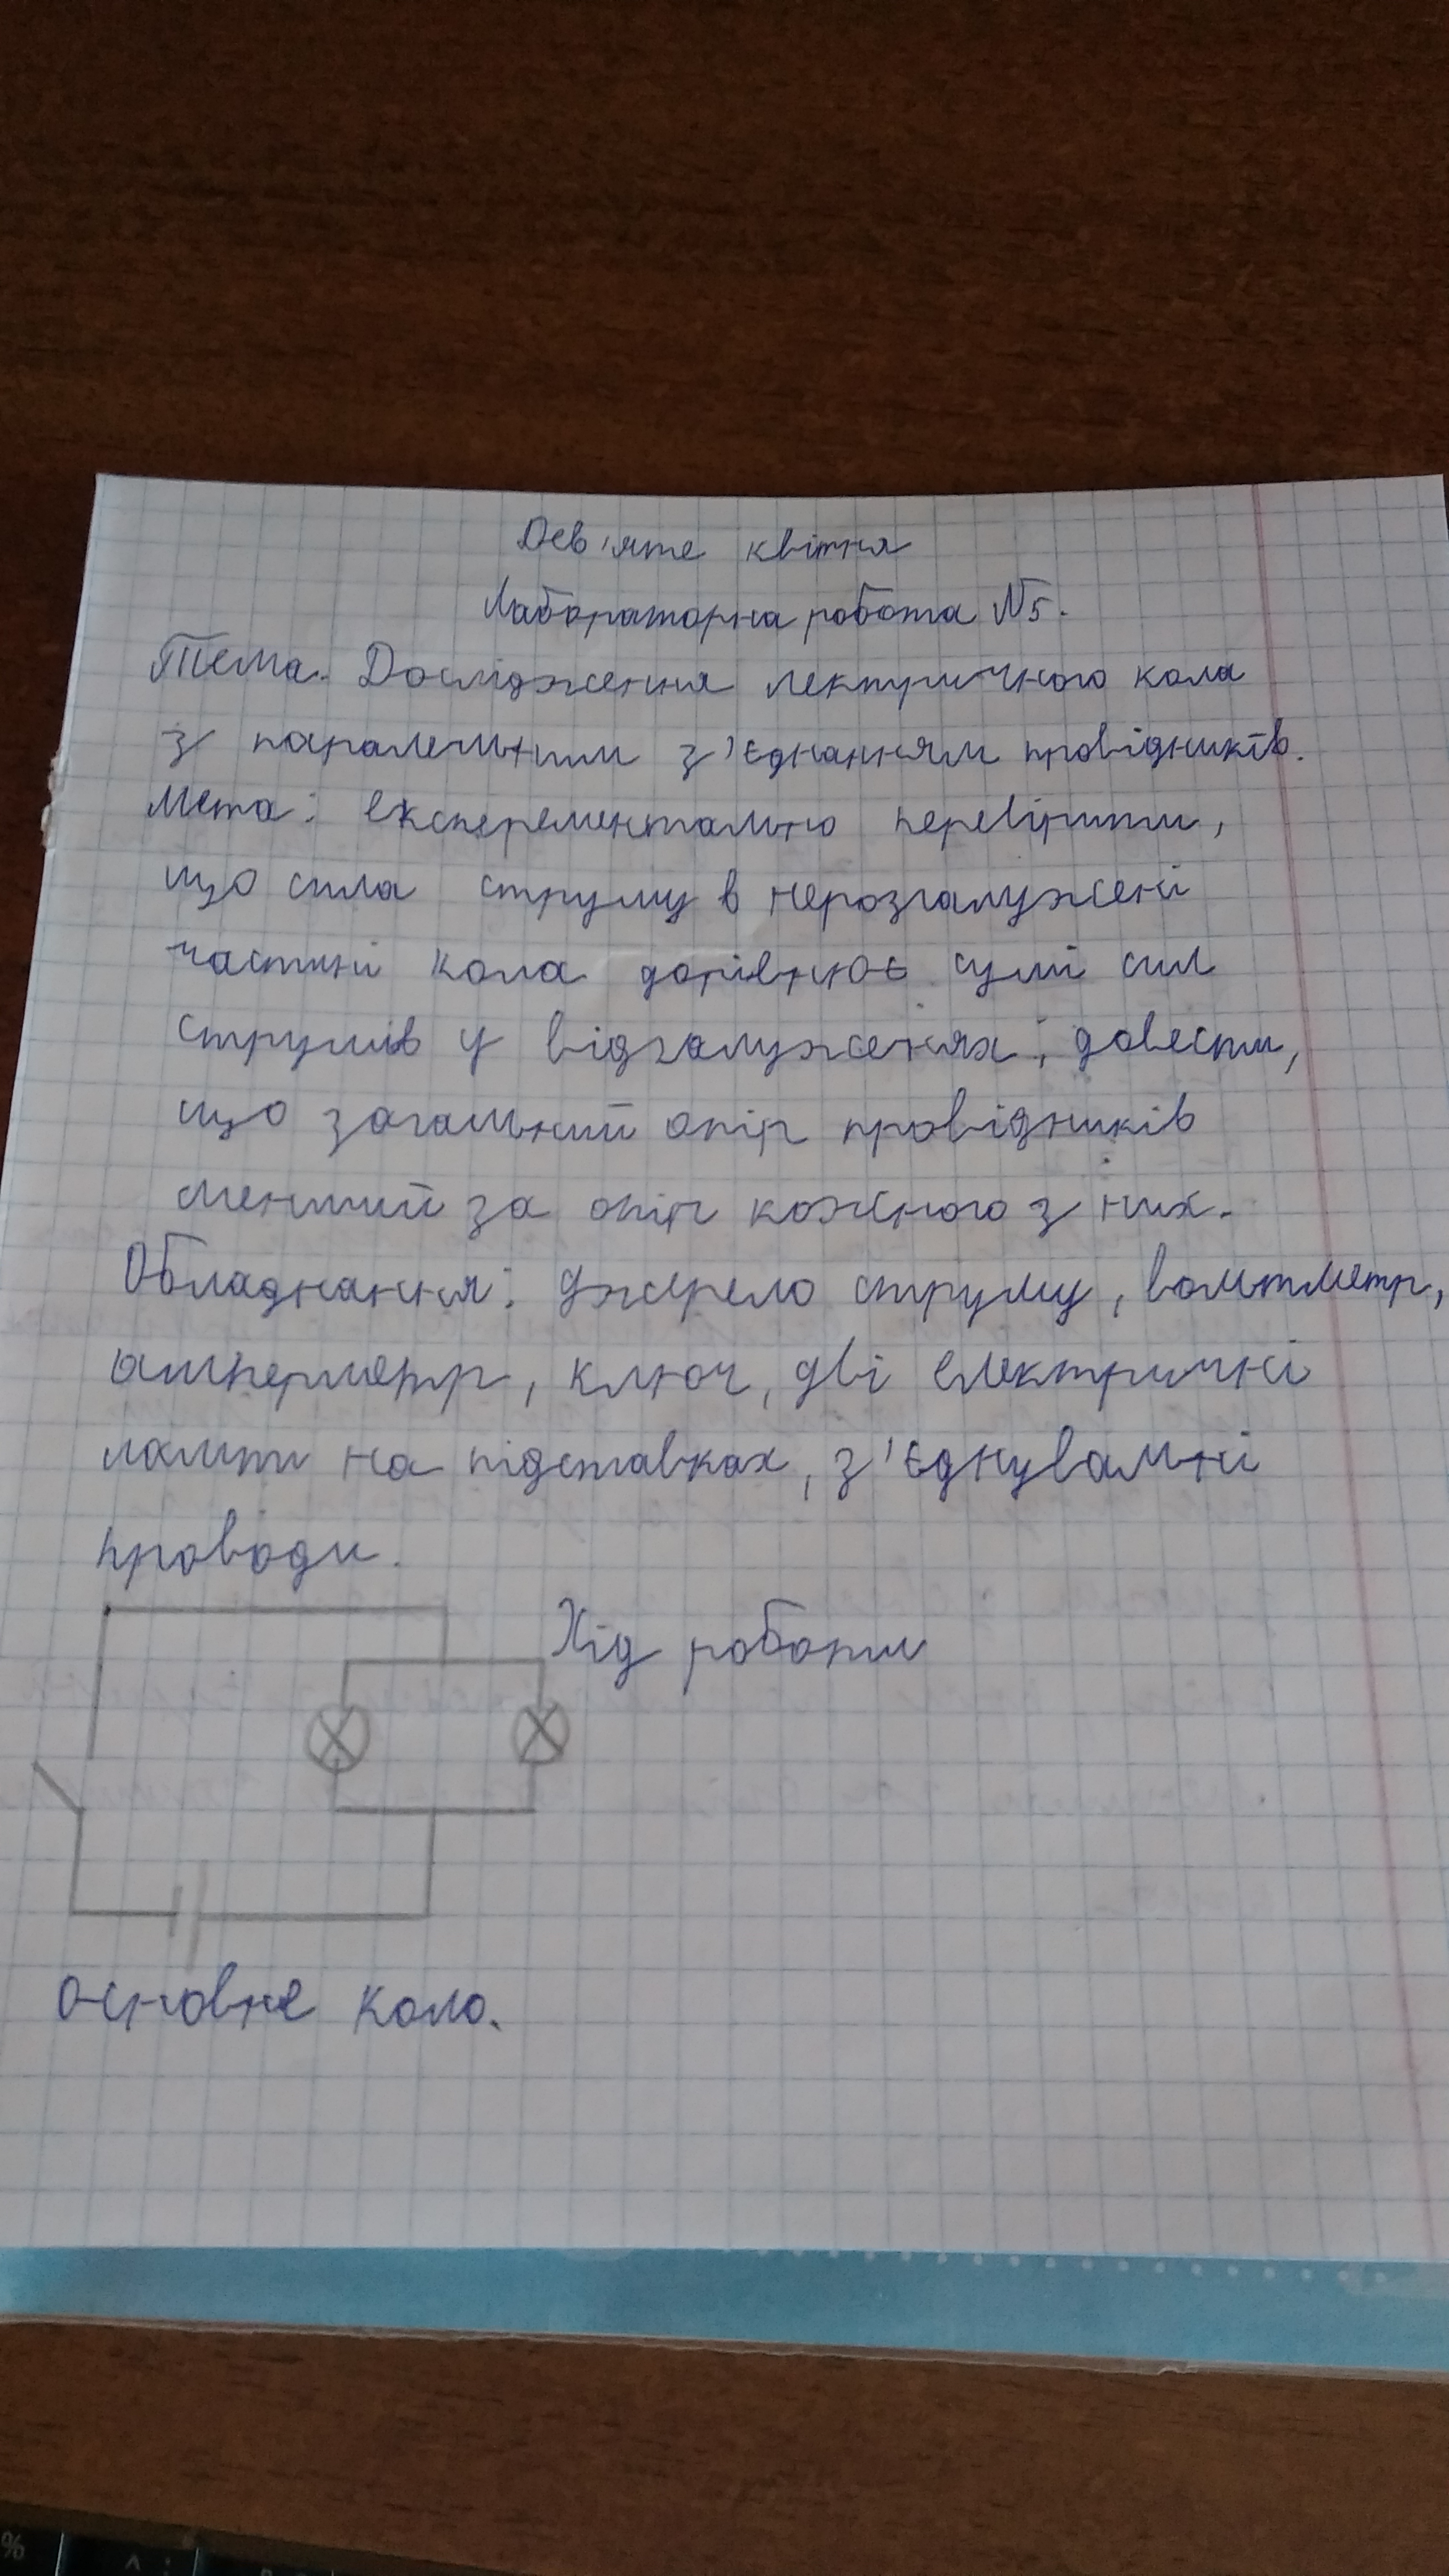 Дев'яте квітня
Лабораторна робота №5.
Тема. Дослідження лектричного кола
з паралельним з'єднанням провідників.
Мета: експерементально перевірити,
що сила струму в нерозгалужені
частині кола дорівнює сумі сил
струмів у відгалуженях; довести,
що загальний опір провідників
менший за опір кожного з них.
Обладнання: джерело струму, вольтметр,
амперметр, ключ, дві електричні
лампи на підставках, з'єднувальні
проводи.
Хід роботи
основне коло.
%